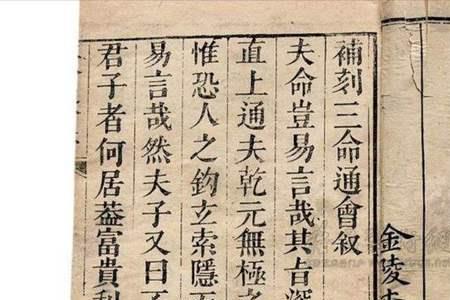 補刻三命通會叙
夫命豈易言哉其㫖深
直上通夫乾元無極之
惟恐人之鈎立索隱而
易言哉然夫子又曰不
君子者何居葢富貴利
金陵